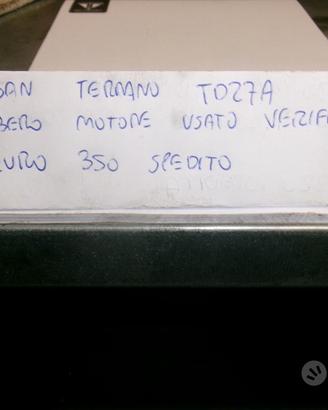 SAN TERRANO TD27A
BERO MOTORE USATO VERIF
EURO 350 SPEDITO